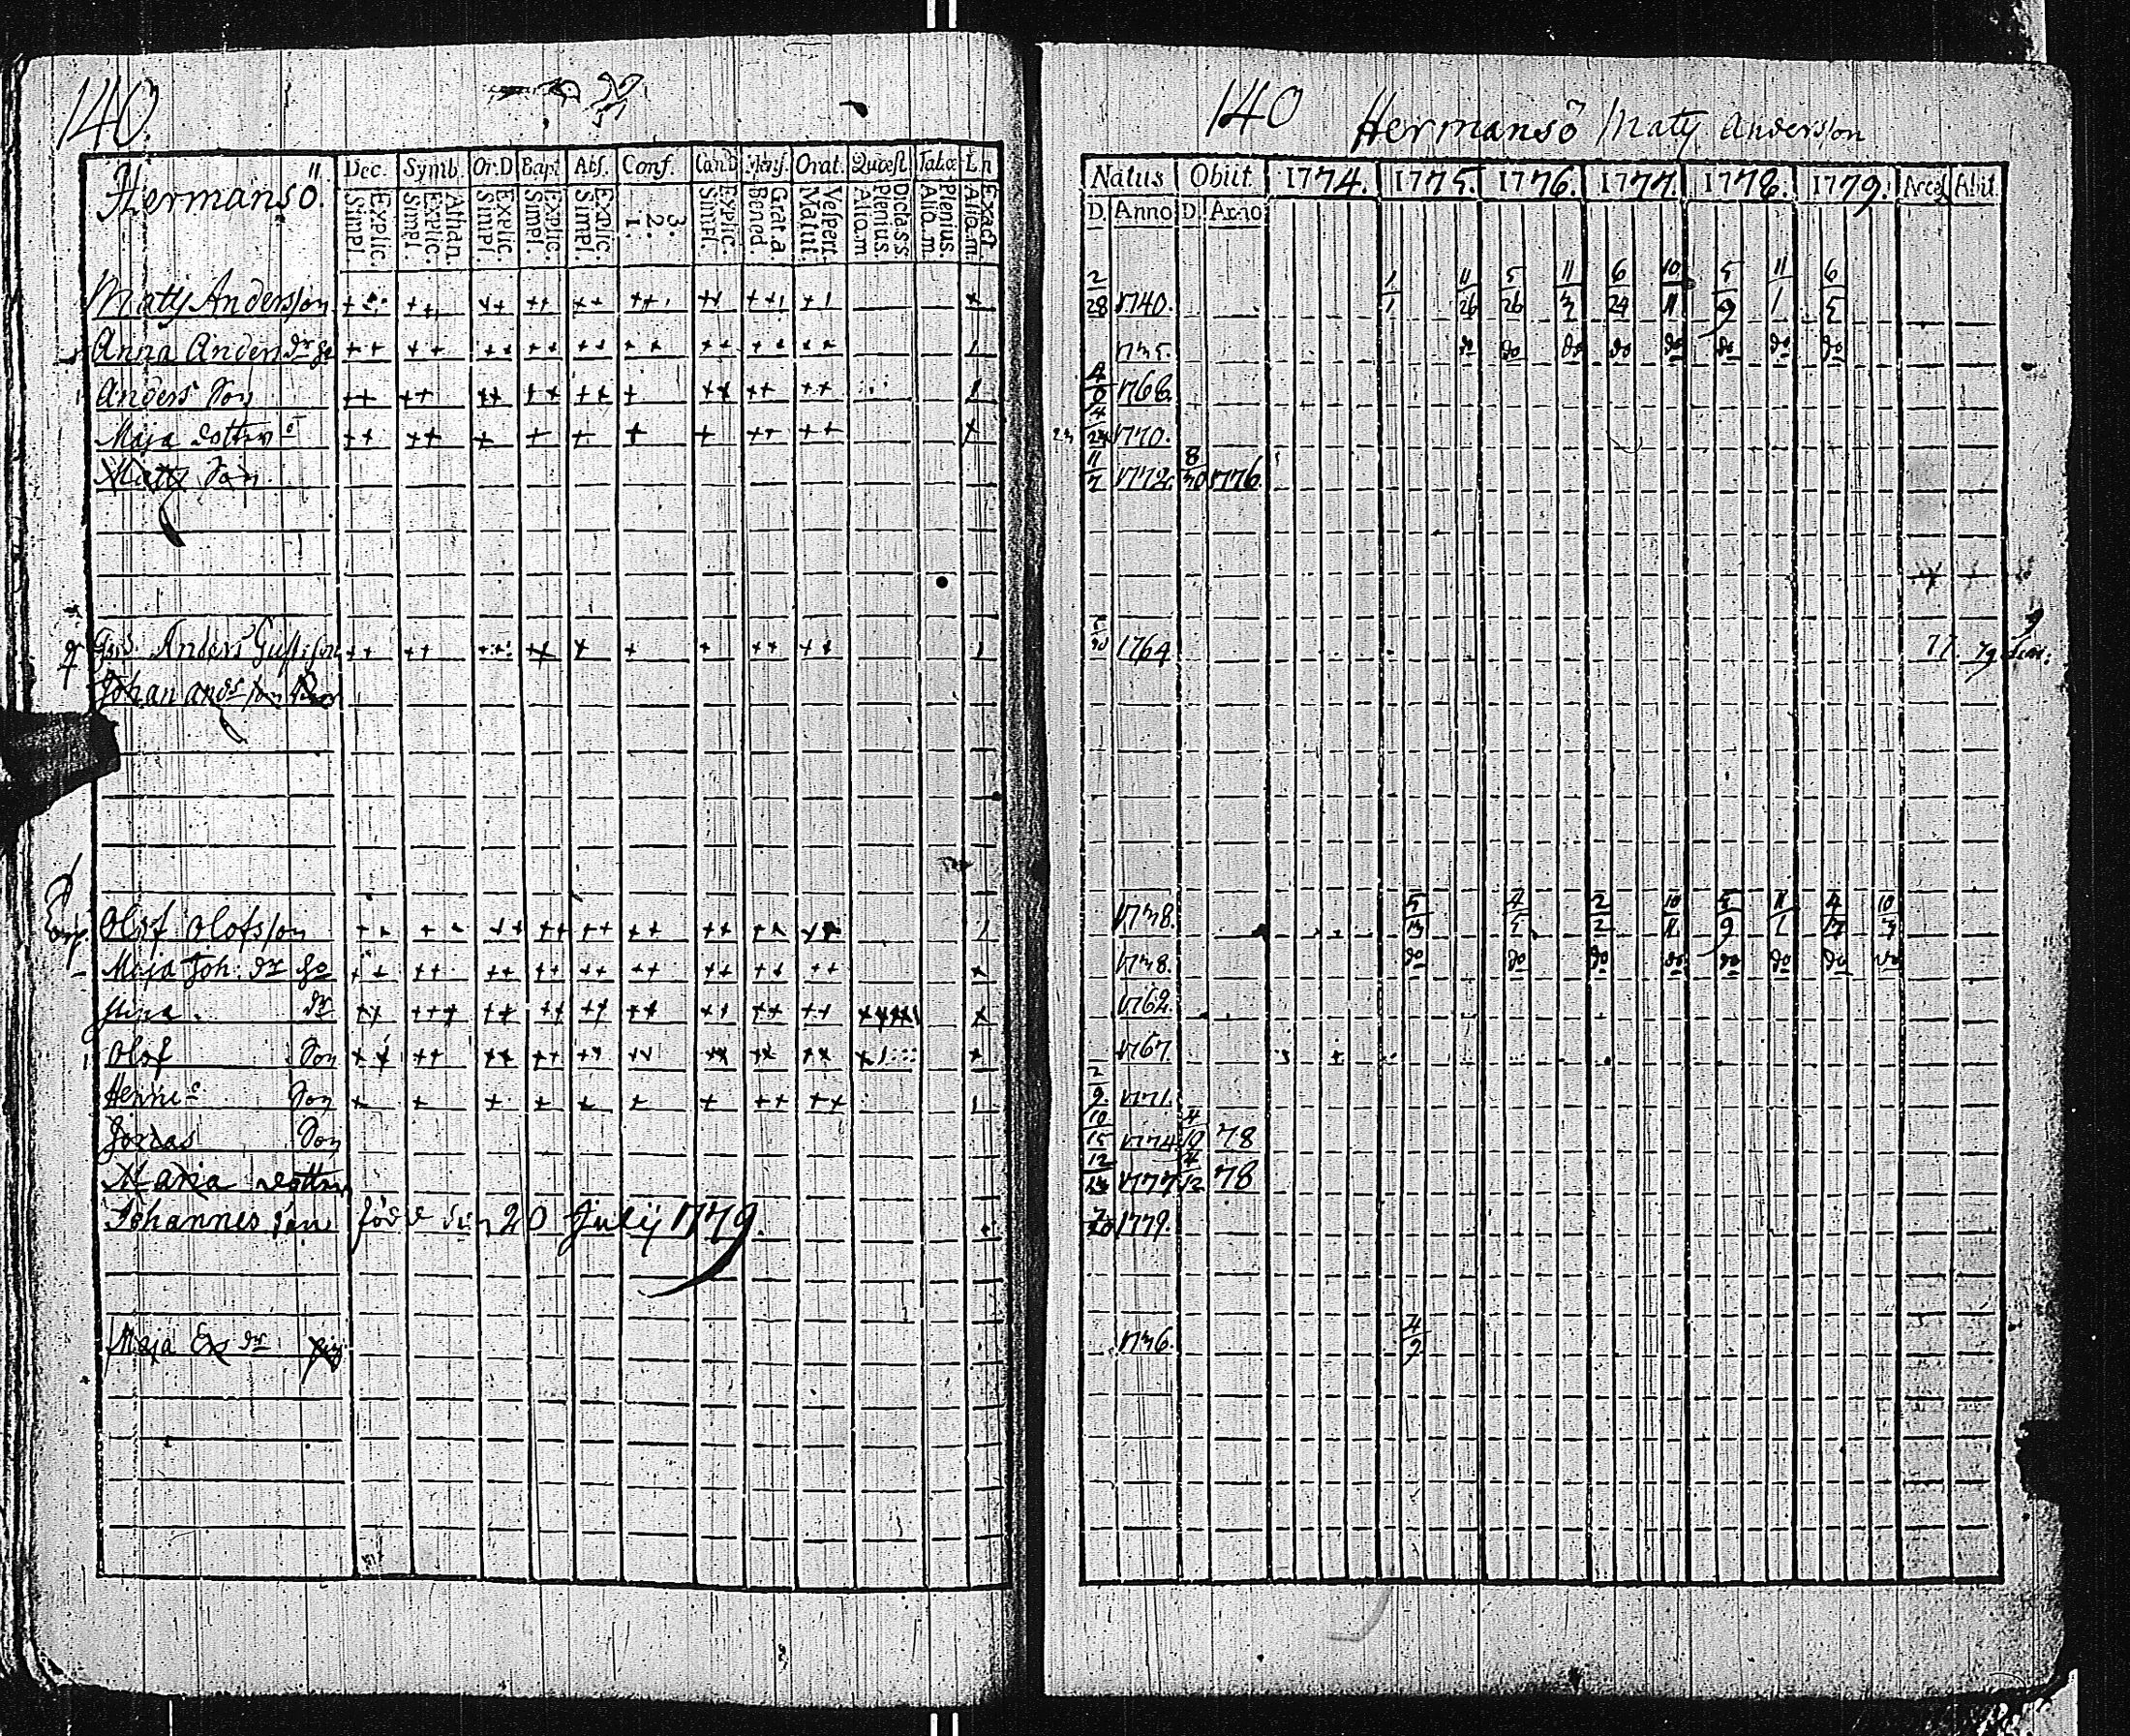 140.
Hermansö.
Dec. Symb. Or.D Bapt. Abs. Conf. Cœn.D Mens. Orat. Quæst. Tabœ Ln
Explic. Simpl. Athan. Explic. Simpl. Explic. Simpl. Explic. Simpl. Explic. Simpl. 3. 2. 1. Explic. Simpl. Grat.a. Bened. Vespert. Matut. Dictas.s. Plenius. Aliq.m Plenius. Aliq.m. Exact. Aliq.m.
Matts Andersson
Anna Anders dr
Anders Son
Maja dotter
Matts Son
Anders Gustafson
Johan and:s son
Olof Olofsson
Maja Joh. dr
Stina dr
Olof Son
Henric Son
Jonas Son
Maria dotter
Johannes son född den 20 Julij 1779.
Maja Ers dr pig
140 Hermansö Matts Andersson
Natus Obiit. 1774. 1775. 1776. 1777. 1778. 1779. Acces. Abiit.
D. Anno D. Anno
2/28 1740. 1/1 11/26 5/26 11/3 6/29 10/11 5/9 11/1 6/5
1735. do do do do do do do do
1768.
4/24 1770.
11/7 1772 8/30 1776.
1764 77. 79
1738. 5/13 4/5 2/2 10/11 5/9 11/1 4/17 10/3
1738. do do do do do do do do
1762.
1767.
2/9 1771.
10/15 1774 4/10 78
12/13 1777 4/12 78
7/20 1779.
1736. 4/9